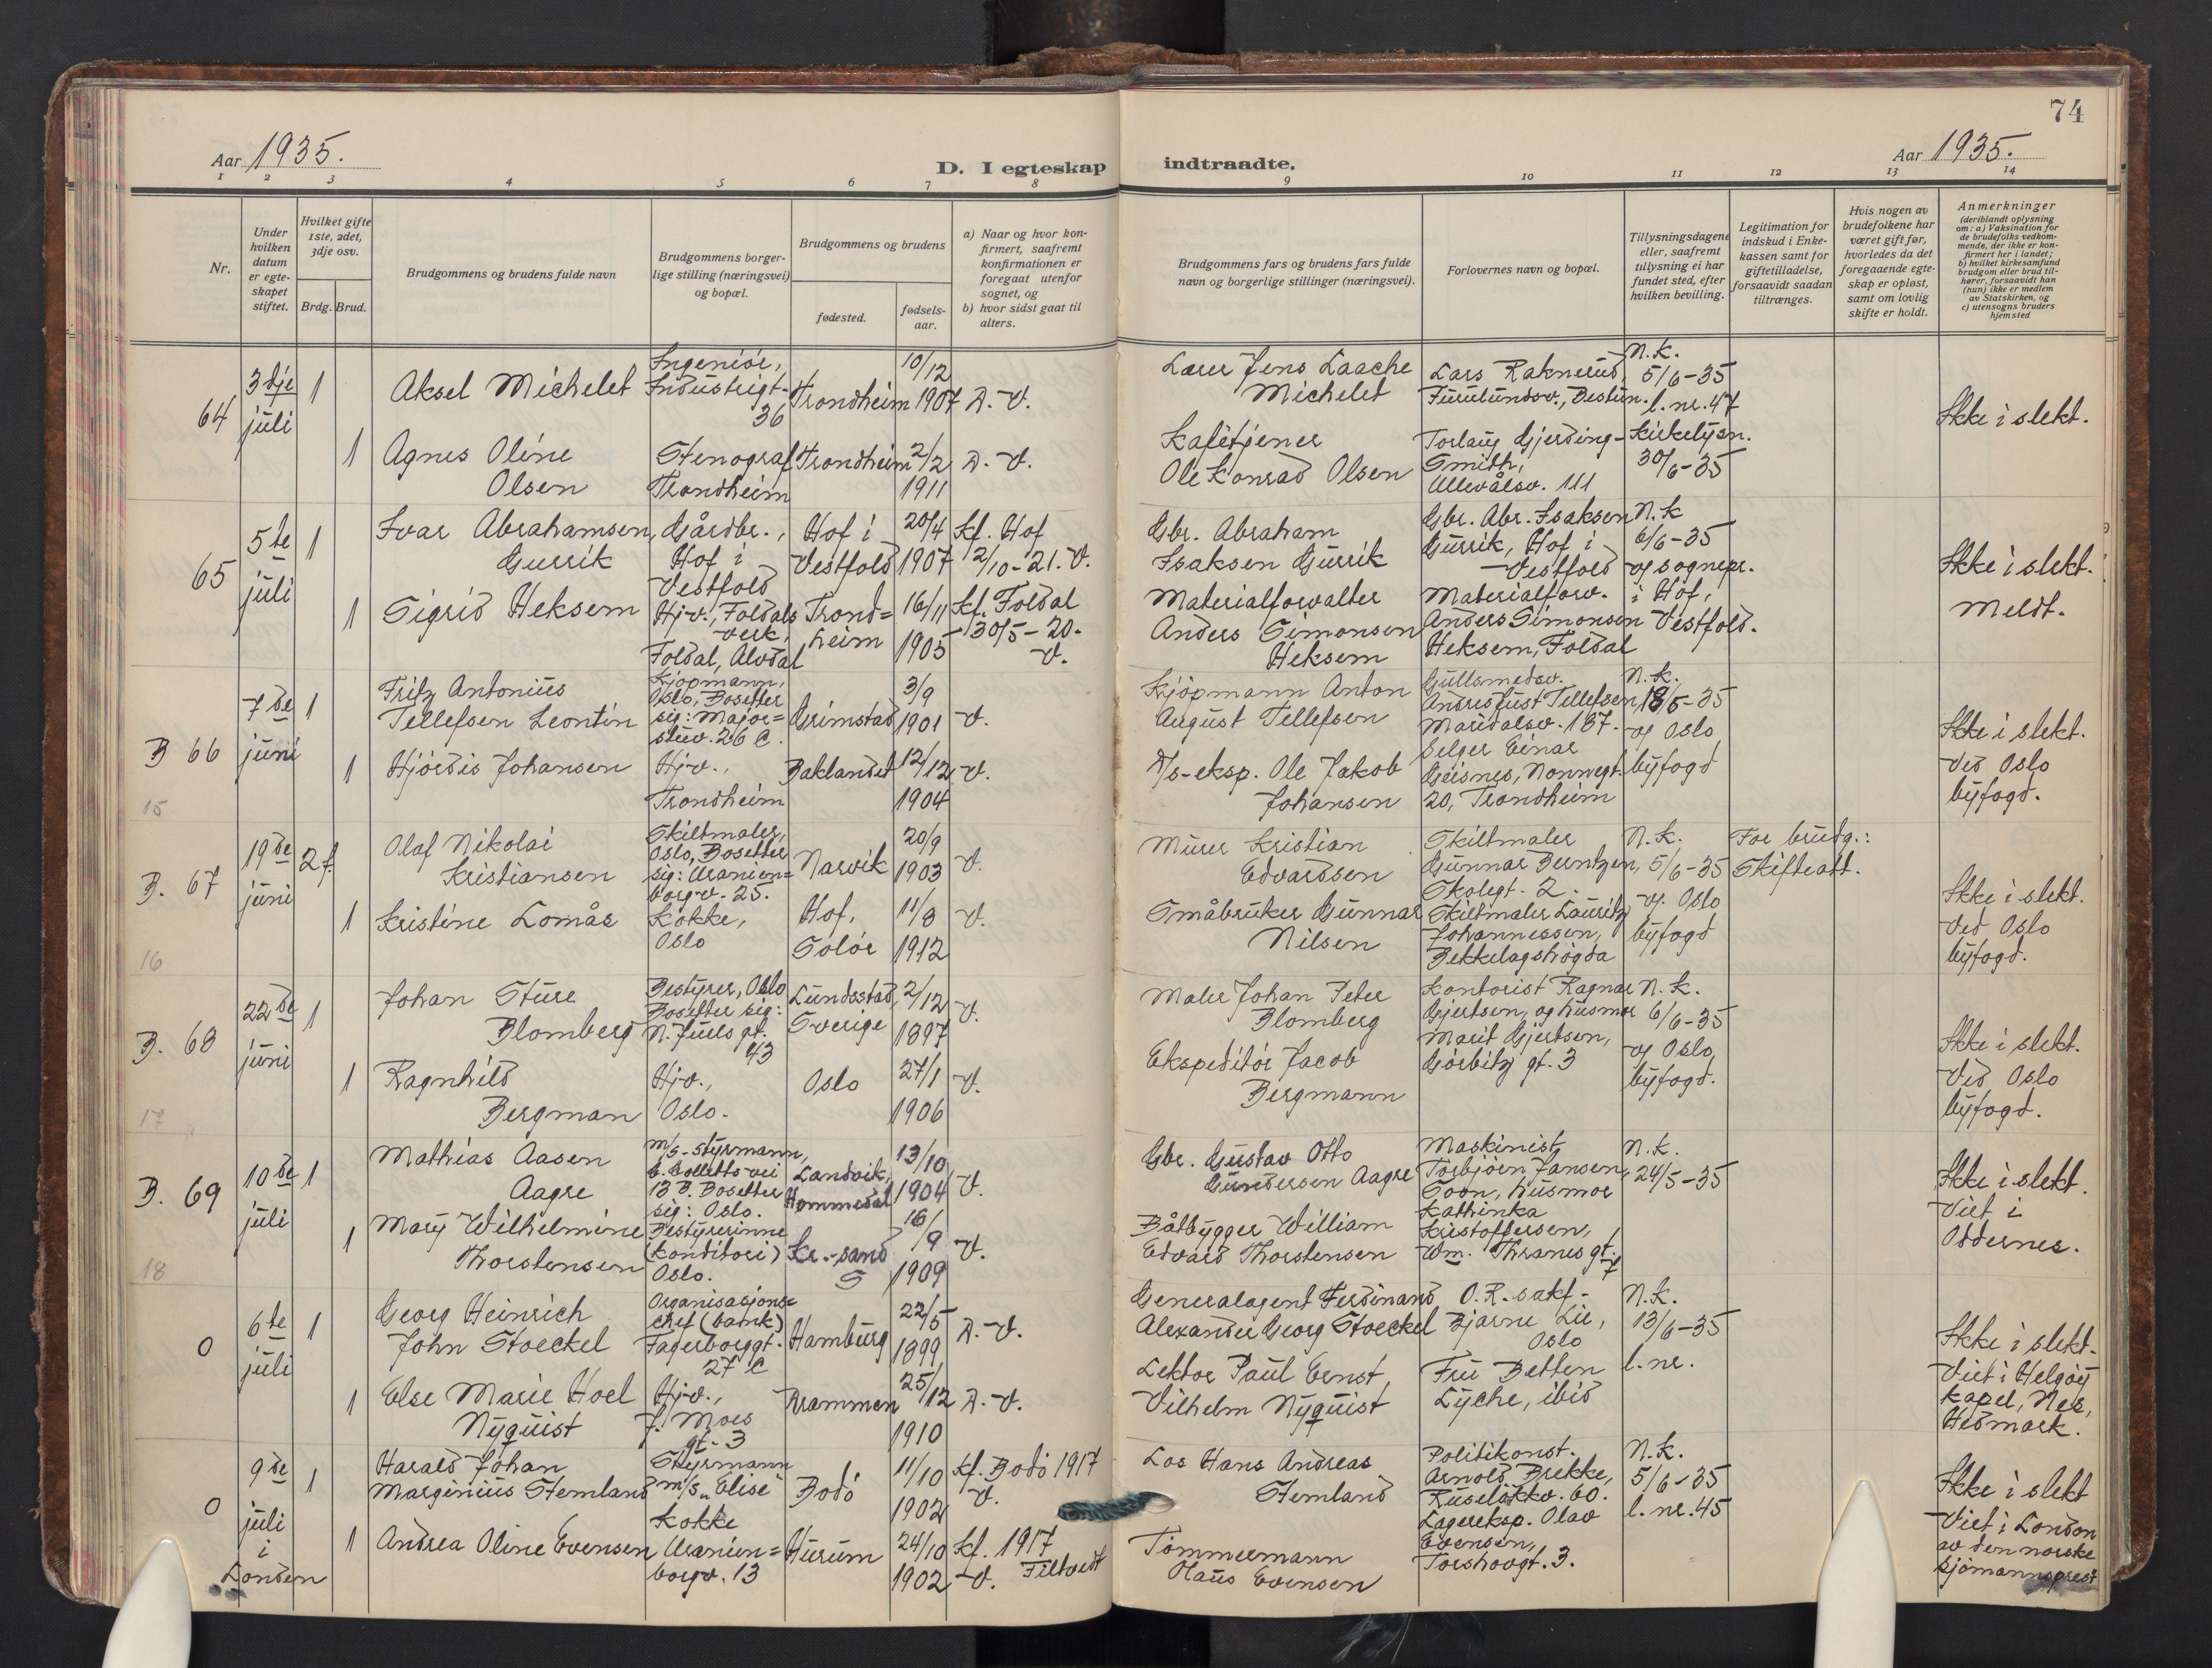 74
Aar 1935.
D. I egteskap indtraadte.
Aar 1935.
1 2 3 4 5 6 7 8 9 10 11 12 13 14
Nr.
Under hvilken datum er egte-skapet stiftet.
Hvilket gifte 1ste, 2det, 3dje osv.
Brdg. Brud.
Brudgommens og brudens fulde navn
Brudgommens borger-lige stilling (næringsvei) og bopæl.
Brudgommens og brudens
fødested.
fødsels-aar.
a) Naar og hvor kon-firmert, saafremt konfirmationen er foregaat utenfor sognet, og
b) hvor sidst gaat til alters.
Brudgommens fars og brudens fars fulde navn og borgerlige stillinger (næringsvei).
Forlovernes navn og bopæl.
Tillysningsdagene eller, saafremt tillysning ei har fundet sted, efter hvilken bevilling.
Legitimation for indskud i Enke-kassen samt for giftetilladelse, forsaavidt saadan tiltrænges.
Hvis nogen av brudefolkene har været gift før, hvorledes da det foregaaende egte-skap er opløst, samt om lovlig skifte er holdt.
Anmerkninger
(deriblandt oplysning om: a) Vaksination for de brudefolks vedkom-mende, der ikke er kon-firmert her i landet; b) hvilket kirkesamfund brudgom eller brud til-hører, forsaavidt han (hun) ikke er medlem av Statskirken, og c) utensogns bruders hjemsted
64
3dje juli
1
Aksel Michelet
Ingeniør, Industrigt. 36
Trondheim
10/12 1907
D. V.
Lærer Jens Laache Michelet
Lars Raknerud, Furulundsv., Bestun.
N.k. 5/6-35 l. nr. 47
Ikke i slekt.
1
Agnes Oline Olsen
Stenograf Trondheim
Trondheim
2/2 1911
D. V.
Kafétjener Ole Konrad Olsen
Torlaug Gjerding-Smith, Ullevålsv. 111
Kirkelysn. 30/6-35
65
5te juli
1
Ivar Abrahamsen Gurrik
Gårdbr., Hof i Vestfold
Hof i Vestfold
20/4 1907
Kf. Hof 2/10-21. V.
Gbr. Abraham Isaksen Gurrik
Gbr. Abr. Isaksen Gurrik, Hof i Vestfold
N.k 6/6-35 og sognepr. i Hof, Vestfold.
Ikke i slekt. Meldt.
1
Sigrid Heksem
Hj.v., Foldals verk, Foldal, Alvdal
Trond=heim
16/11 1905
Kf. Foldal 30/5-20. V.
Materialforvalter Anders Simonsen Heksem
Materialforv. Anders Simonsen Heksem, Foldal
B 66
15
7de juni
1
Fritz Antonius Tellefsen Leontin
Kjøpmann, Oslo, Bosetter sig: Major=stuv. 26 C.
Grimstad
3/9 1901
V.
Kjøpmann Anton August Tellefsen
Gullsmedsv. Andreas Just Tellefsen, Maridalsv. 137.
N.k. 18/5-35 og Oslo byfogd
Ikke i slekt. Ved Oslo byfogd.
1
Hjørdis Johansen
Hj.v., Trondheim
Baklandet
12/12 1904
V.
D/s-eksp. Ole Jakob Johansen
Selger Einar Geisnes, Nonnegt. 20, Trondheim
B. 67
16
19de juni
2 f.
Olaf Nikolai Kristiansen
Skiltmaler, Oslo, Bosetter sig: Uranien=borgv. 25.
Narvik
20/9 1903
V.
Murer Kristian Edvardsen
Skiltmaler Gunnar Berntzen, Skolegt. 2.
N.k. 5/6-35 og Oslo byfogd
For brudg.: Skifteatt.
Ikke i slekt. Ved Oslo byfogd.
1
Kristine Lomås
Kokke, Oslo
Hof, Solør
11/8 1912
V.
Småbruker Gunnar Nilsen
Skiltmaler Lauritz Johannessen, Bekkelagshøgda
B. 68
17
22de juni
1
Johan Sture Blomberg
Bestyrer, Oslo Bosetter sig: N. Juels gt. 43
Lundsstad, Sverige
2/12 1897
V.
Maler Johan Peter Blomberg
Kontorist Ragnar Gjertsen, og husmor Marit Gjertsen, Gørbitz gt. 3
N.k. 6/6-35 og Oslo byfogd.
Ikke i slekt. Ved Oslo byfogd.
1
Ragnhild Bergman
Hj.v., Oslo.
Oslo
27/1 1906
V.
Ekspeditør Jacob Bergmann
B. 69
18
10de juli
1
Mathias Aasen Aagre
m/s-styrmann, C. Colletts vei 13 B. Bosetter sig: Oslo.
Landvik, Hommedal
13/10 1904
V.
Gbr. Gustav Otto Gundersen Aagre
Maskinist Torbjørn Jansen, Soon, husmor Kathinka Kristoffersen, Wm. Thranes gt. 7
N.k. 24/5-35
Ikke i slekt. Viet i Oddernes.
1
Mary Wilhelmine Thorstensen
Bestyrerinne (konditori) Oslo.
Kr.-sand S
16/9 1909
V.
Båtbygger William Edvard Thorstensen
0
6te juli
1
Georg Heinrich John Stoeckel
Organisasjons=chef (bank) Fagerborggt. 27 C
Hamburg
22/5 1899
D. V.
Generalagent Ferdinand Alexander Georg Stoeckel
O.R. sakf. Bjarne Lie, Oslo
N.k. 13/6-35 l. nr.
Ikke i slekt. Viet i Helgøy kapel, Nes, Hedmark.
1
Else Marie Hoel Nyquist
Hj.v., J. Moes gt. 3
Drammen
25/12 1910
D. V.
Lektor Paul Ernst Vilhelm Nyquist
Fru Betten Lyche, ibid
0
9de juli i London
1
Harald Johan Marginius Stemland
Styrmann m/s „Elise"
Bodø
11/10 1902
Kf. Bodø 1917 V.
Los Hans Andreas Stemland
Politikonst. Arnold Brekke, Ruseløkkv. 60.
N.k. 5/6-35 l. nr. 45
Ikke i slekt Viet i London av den norske sjømannsprest
1
Andrea Oline Evensen
Kokke Uranien=borgv. 13
Hurum
24/10 1902
Kf. 1917 V. Filtvedt
Tømmermann Olaus Evensen
Lagereksp. Olav Evensen, Torshovgt. 3.